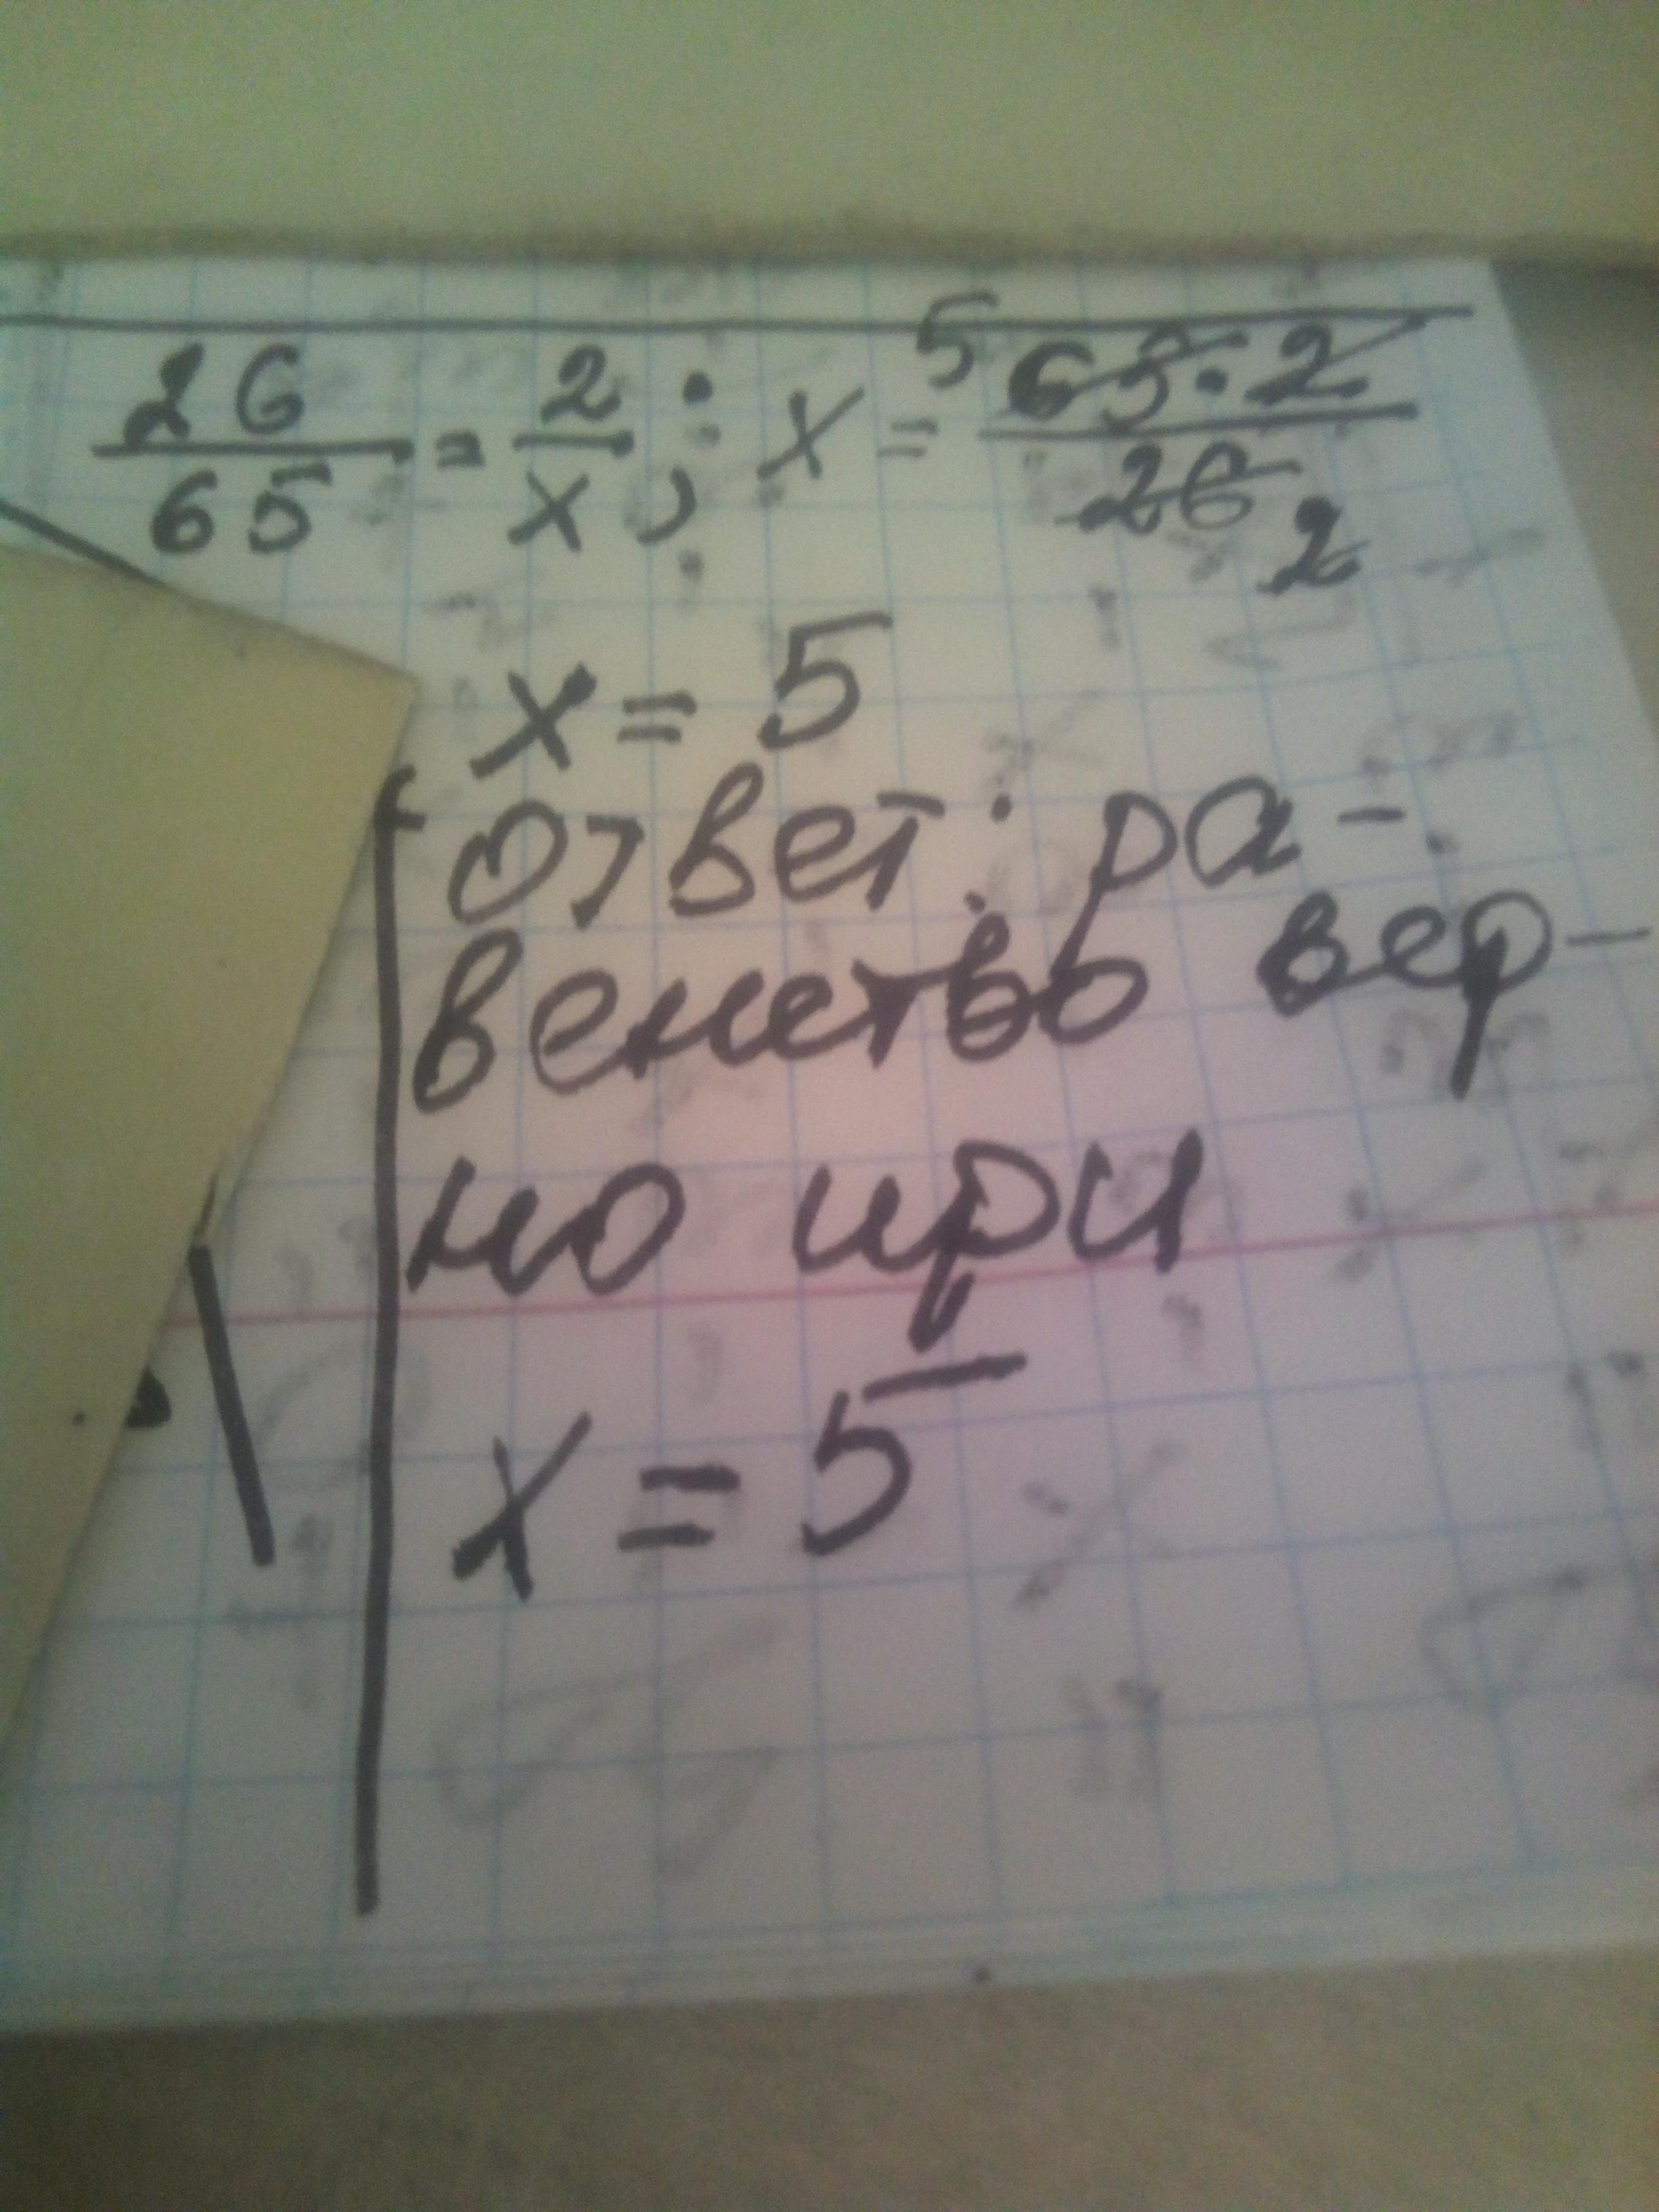 26/65 = 2/x; x = 5 65·2/26 2
x = 5
ответ: ра-
венство вер-
но при
x = 5